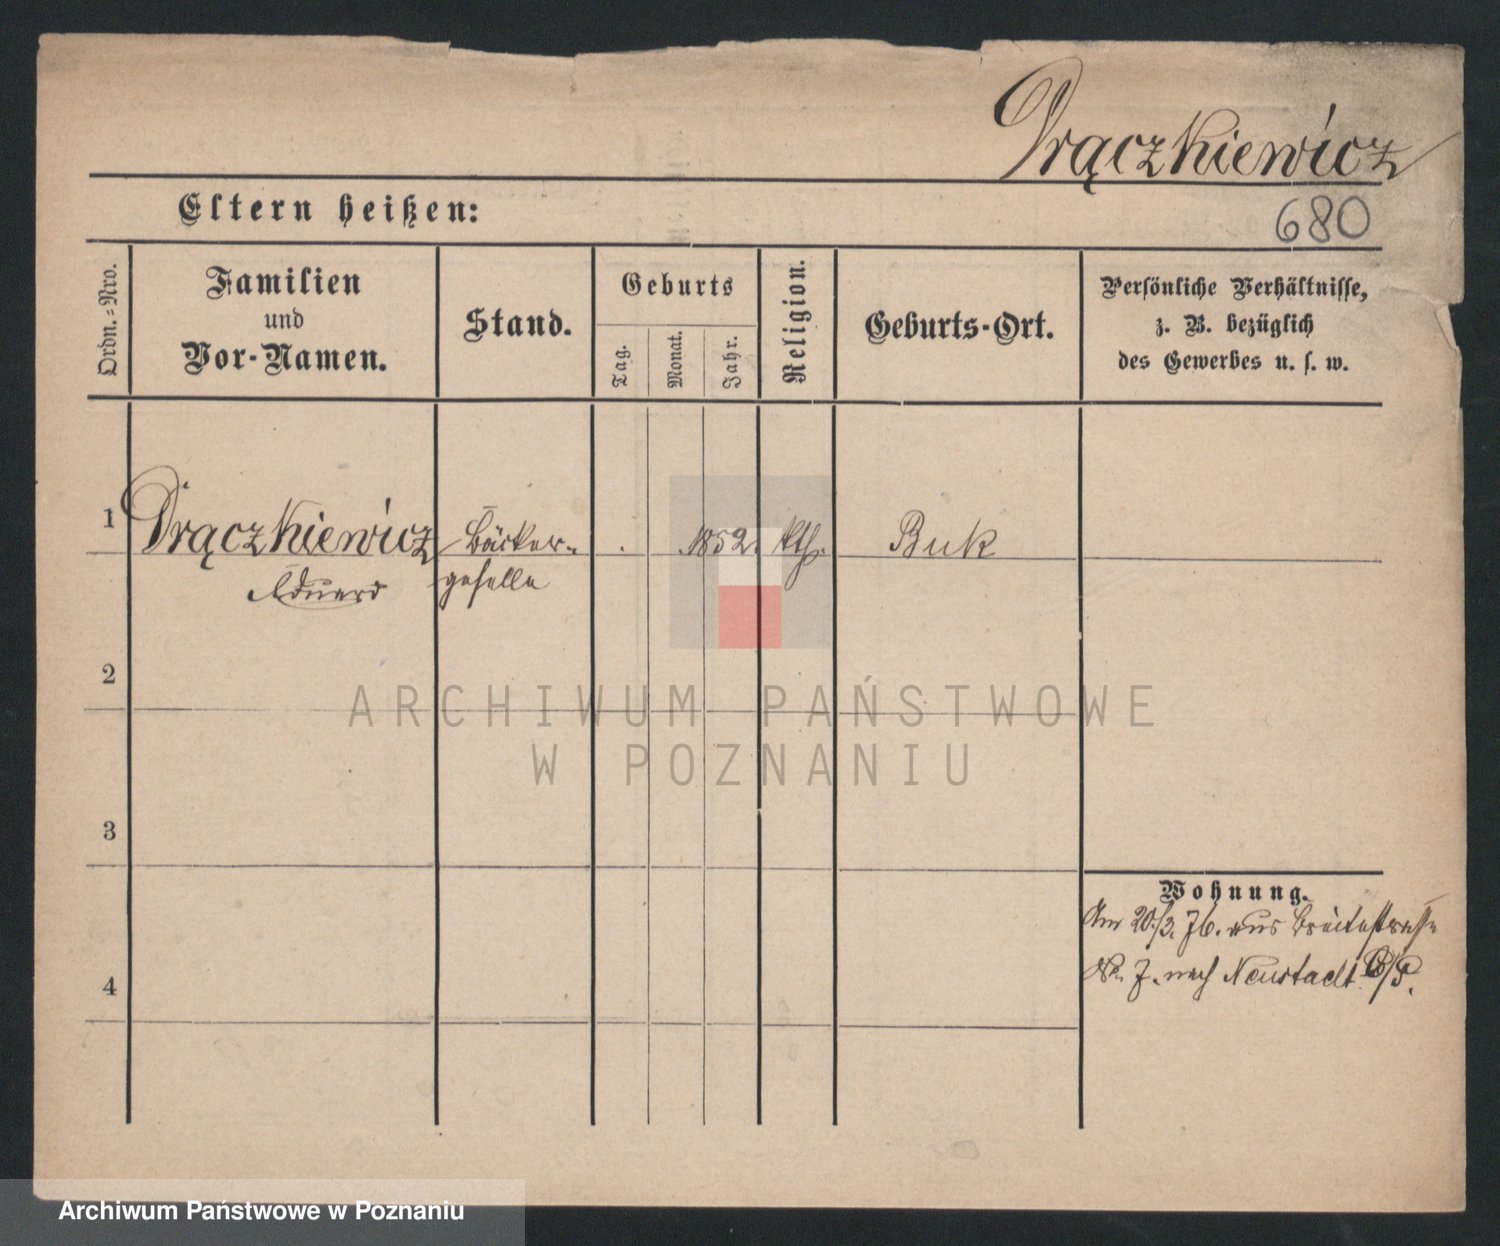 Drączkiewicz
Eltern heißen:
680
Ordn.-Nro.
Familien
und
Vor-Namen.
Stand.
Geburts
Tag.
Monat.
Jahr.
Religion.
Geburts-Ort.
Persönliche Verhältnisse,
z. B. bezüglich
des Gewerbes u. s. w.
1
Drączkiewicz
Eduard
Bäcker-
geselle
1852.
kth.
Buk
2
ARCHIWUM PAŃSTWOWE
W POZNANIU
3
Wohnung.
Am 20./3. 76. aus Breitestrasse
No. 7. nach Neustadt B/P.
4
Archiwum Państwowe w Poznaniu